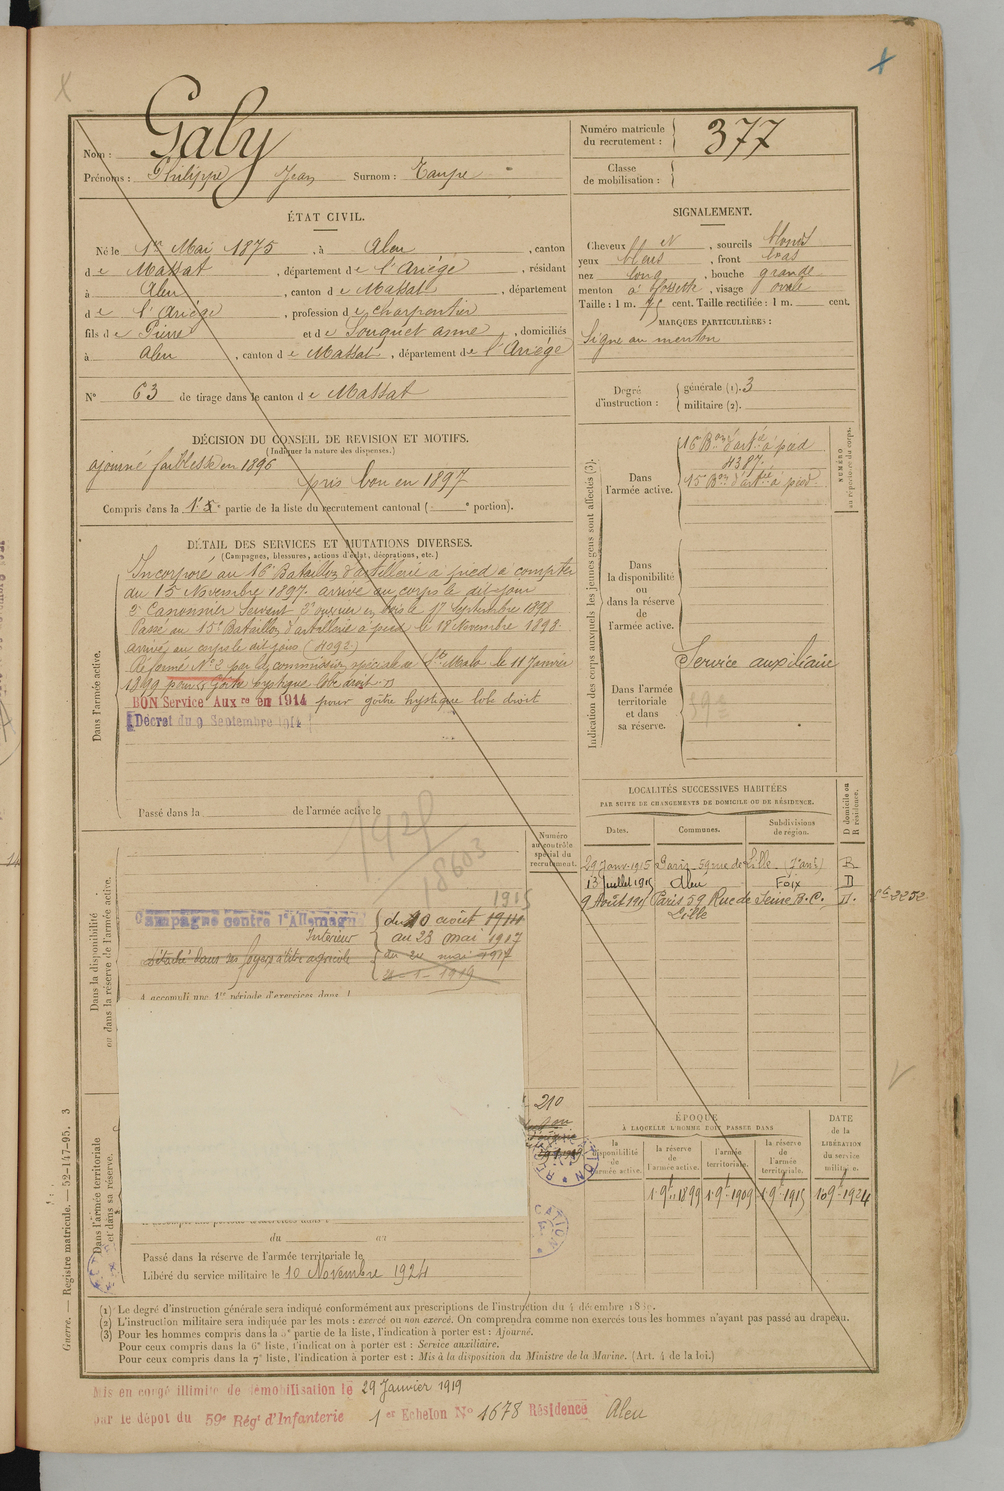 Galy
Nom :
Prénoms : Philippe Jean Surnom : Taupe
Numéro matricule du recrutement : 377
Classe de mobilisation :
ÉTAT CIVIL.
Né le 1er Mai 1875, à Aleu, canton
de Massat, département de l'Ariège, résidant
à Aleu, canton de Massat, département
de l'Ariège, profession de charpentier
fils de Pierre et de Souquet anne, domiciliés
à Aleu, canton de Massat, département de l'Ariège
N° 63 de tirage dans le canton de Massat
SIGNALEMENT.
Cheveux et, sourcils blonds
yeux bleus, front bas
nez long, bouche grande
menton à fossette, visage ovale
Taille : 1 m. 75 cent. Taille rectifiée : 1 m. cent.
MARQUES PARTICULIÈRES :
Signe au menton
Degré d'instruction : générale (1). 3
militaire (2).
DÉCISION DU CONSEIL DE REVISION ET MOTIFS.
(Indiquer la nature des dispenses.)
ajourné faiblesse en 1896
pris bon en 1897
Compris dans la partie de la liste du recrutement cantonal ( portion).
DÉTAIL DES SERVICES ET MUTATIONS DIVERSES.
(Campagnes, blessures, actions d'éclat, décorations, etc.)
Dans l'armée active.
Incorporé au 16e Bataillon d'artillerie à pied à compter
du 15 Novembre 1897. arrivé au corps le dit jour
2e Canonnier Servant 2e ouvrier en bois le 17 Septembre 1898
Passé au 15e Bataillon d'artillerie à pied le 18 Novembre 1898.
arrivé au corps le dit jour
Réformé N° 2 par la commission spéciale de St Malo le 11 Janvier
1899 pour Goitre kystique lobe droit.
BON Service Auxre en 1914 pour goitre kystique lobe droit
Décret du 9 Septembre 1914
Passé dans la de l'armée active le
Indication des corps auxquels les jeunes gens sont affectés (3).
Dans l'armée active.
16 Bon d'artie à pied
4387.
15 Bon d'artie à pied
NUMÉRO au répertoire du corps.
Dans la disponibilité ou dans la réserve de l'armée active.
Dans l'armée territoriale et dans sa réserve.
Service auxiliaire
LOCALITÉS SUCCESSIVES HABITÉES
PAR SUITE DE CHANGEMENTS DE DOMICILE OU DE RÉSIDENCE.
Dates. Communes. Subdivisions de région. D domicile ou R résidence.
29 Janv. 1915 Paris 59 rue de Lille R
13 Juillet 1915 Aleu Foix D
9 Août 1915 Paris 59 Rue de Seine B.C. D.
Lille
Dans la disponibilité ou dans la réserve de l'armée active.
Numéro au contrôle spécial du recrutement.
1921
18603
1915
Campagne contre l'Allemagne
du 10 août 1914
Intérieur au 23 mai 1917
Détaché dans ses foyers à titre agricole du 24 mai 1917
1919
A accompli une 1re période d'exercices dans l
Dans l'armée territoriale et dans sa réserve.
210
du au
Passé dans la réserve de l'armée territoriale le
Libéré du service militaire le 10 Novembre 1924
ÉPOQUE
À LAQUELLE L'HOMME DOIT PASSER DANS
la disponibilité de l'armée active.
la réserve de l'armée active. 1899
l'armée territoriale. 1909
la réserve de l'armée territoriale. 1915
DATE de la LIBÉRATION du service militaire. 1924
(1) Le degré d'instruction générale sera indiqué conformément aux prescriptions de l'instruction du 4 décembre
(2) L'instruction militaire sera indiquée par les mots : exercé ou non exercé. On comprendra comme non exercés tous les hommes n'ayant pas passé au drapeau.
(3) Pour les hommes compris dans la 5e partie de la liste, l'indication à porter est : Ajourné.
Pour ceux compris dans la 6e liste, l'indication à porter est : Service auxiliaire.
Pour ceux compris dans la 7e liste, l'indication à porter est : Mis à la disposition du Ministre de la Marine. (Art. 4 de la loi.)
Guerre. — Registre matricule. — 52-147-95. 3
Mis en congé illimité de démobilisation le 29 Janvier 1919
par le dépôt du 59e Régt d'Infanterie 1er Echelon N° 1678 Résidence Aleu